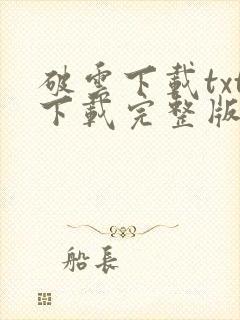 破雲下載txt
下載完整版
船長